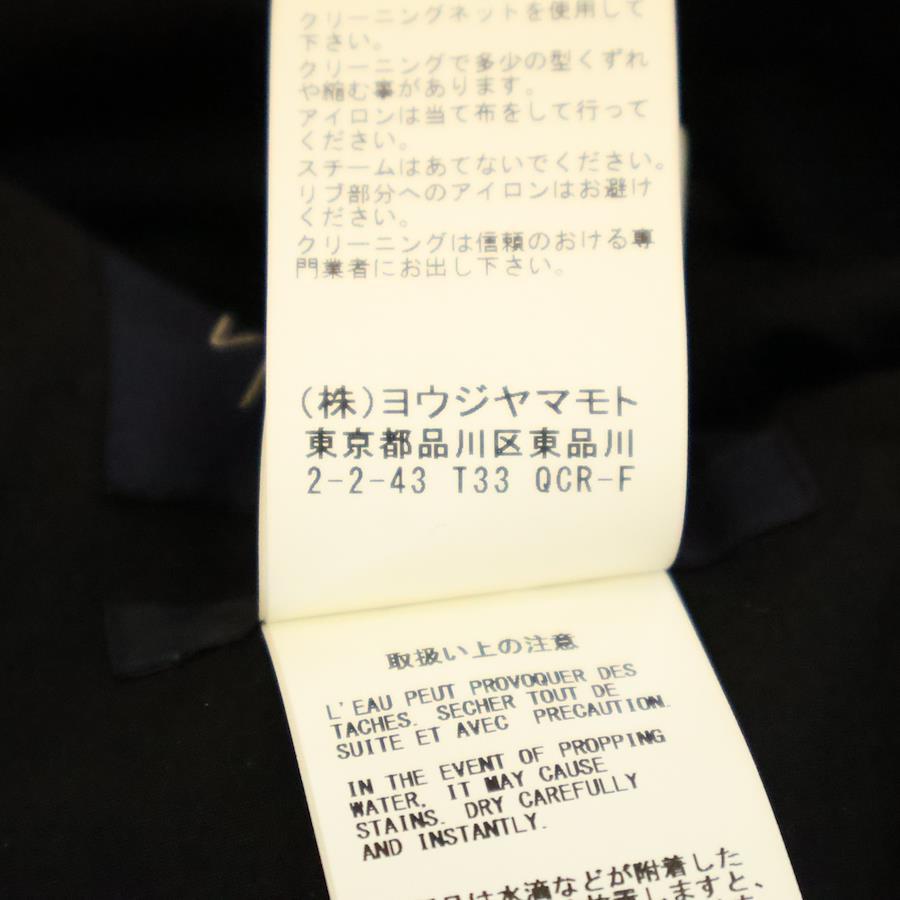 クリーニングネットを使用して
下さい。
クリーニングで多少の型くずれ
や縮む事があります。
アイロンは当て布をして行って
ください。
スチームはあてないでください。
リブ部分へのアイロンはお避け
ください。
クリーニングは信頼のおける専
門業者にお出し下さい。
(株)ヨウジヤマモト
東京都品川区東品川
2-2-43 T33 QCR-F
取扱い上の注意
L'EAU PEUT PROVOQUER DES
TACHES. SECHER TOUT DE
SUITE ET AVEC PRECAUTION.
IN THE EVENT OF PROPPING
WATER, IT MAY CAUSE
STAINS. DRY CAREFULLY
AND INSTANTLY.
品は水滴などが附着した
しますと、